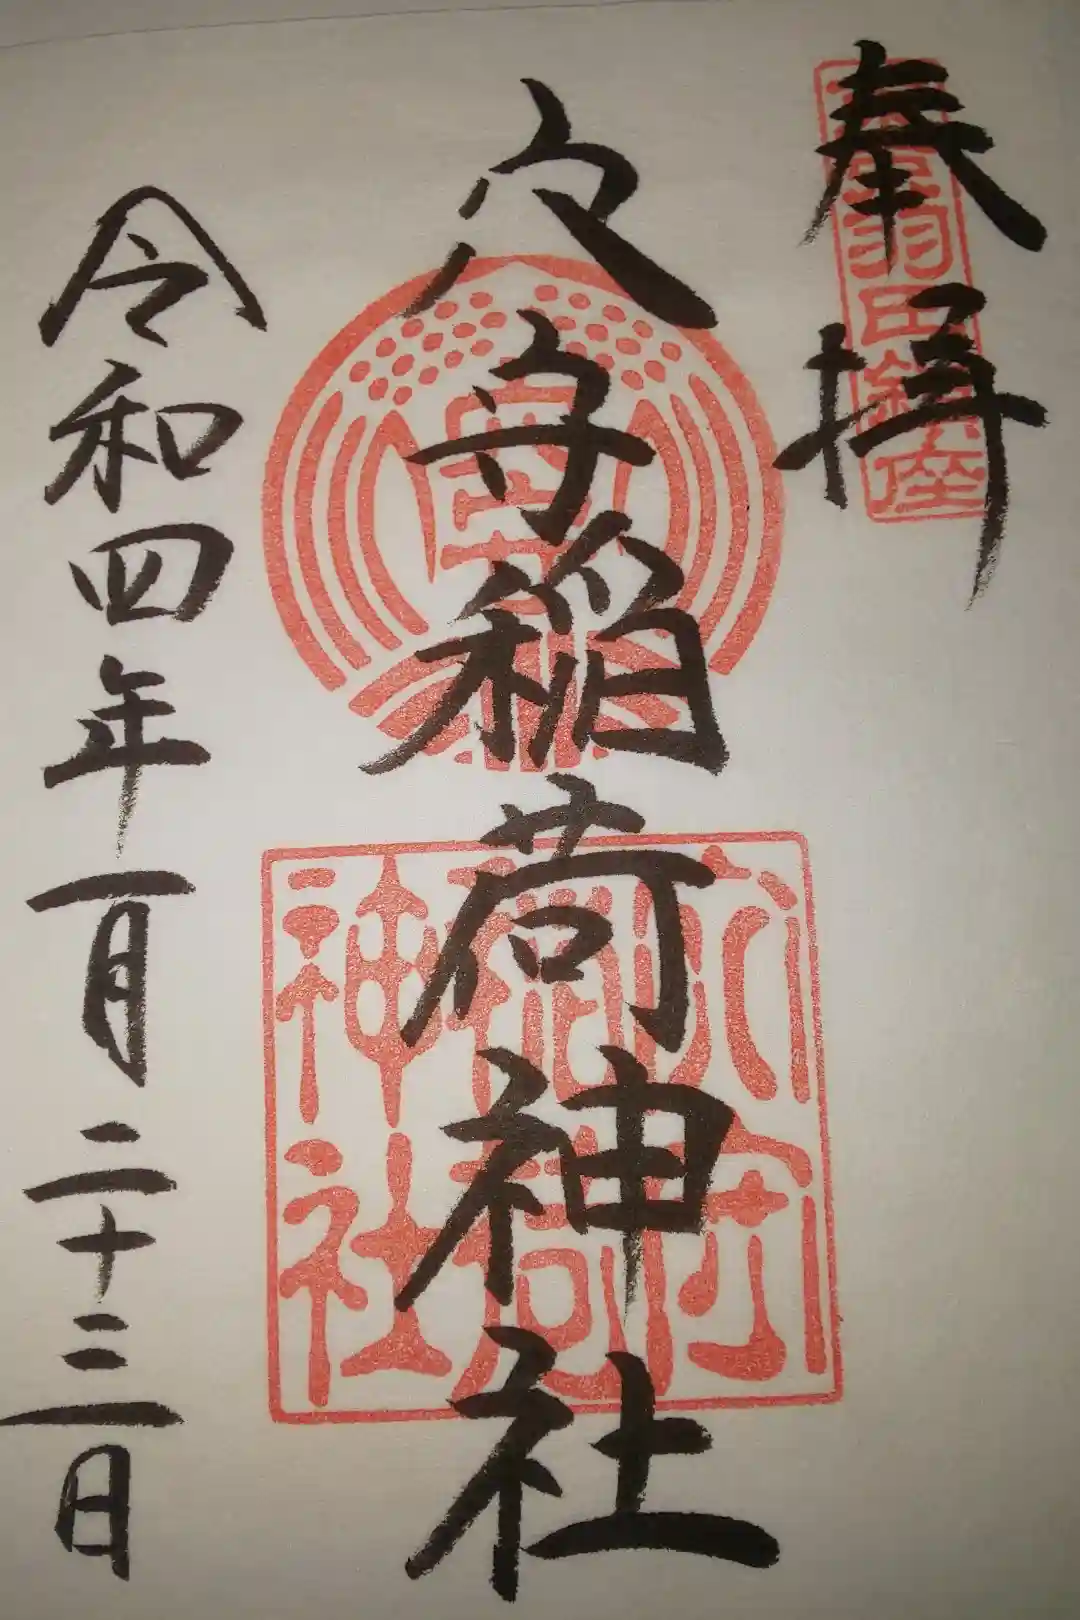 奉拝
東京羽田鎮座
穴守稲荷神社
穴守稲荷神社
令和四年一月二十三日